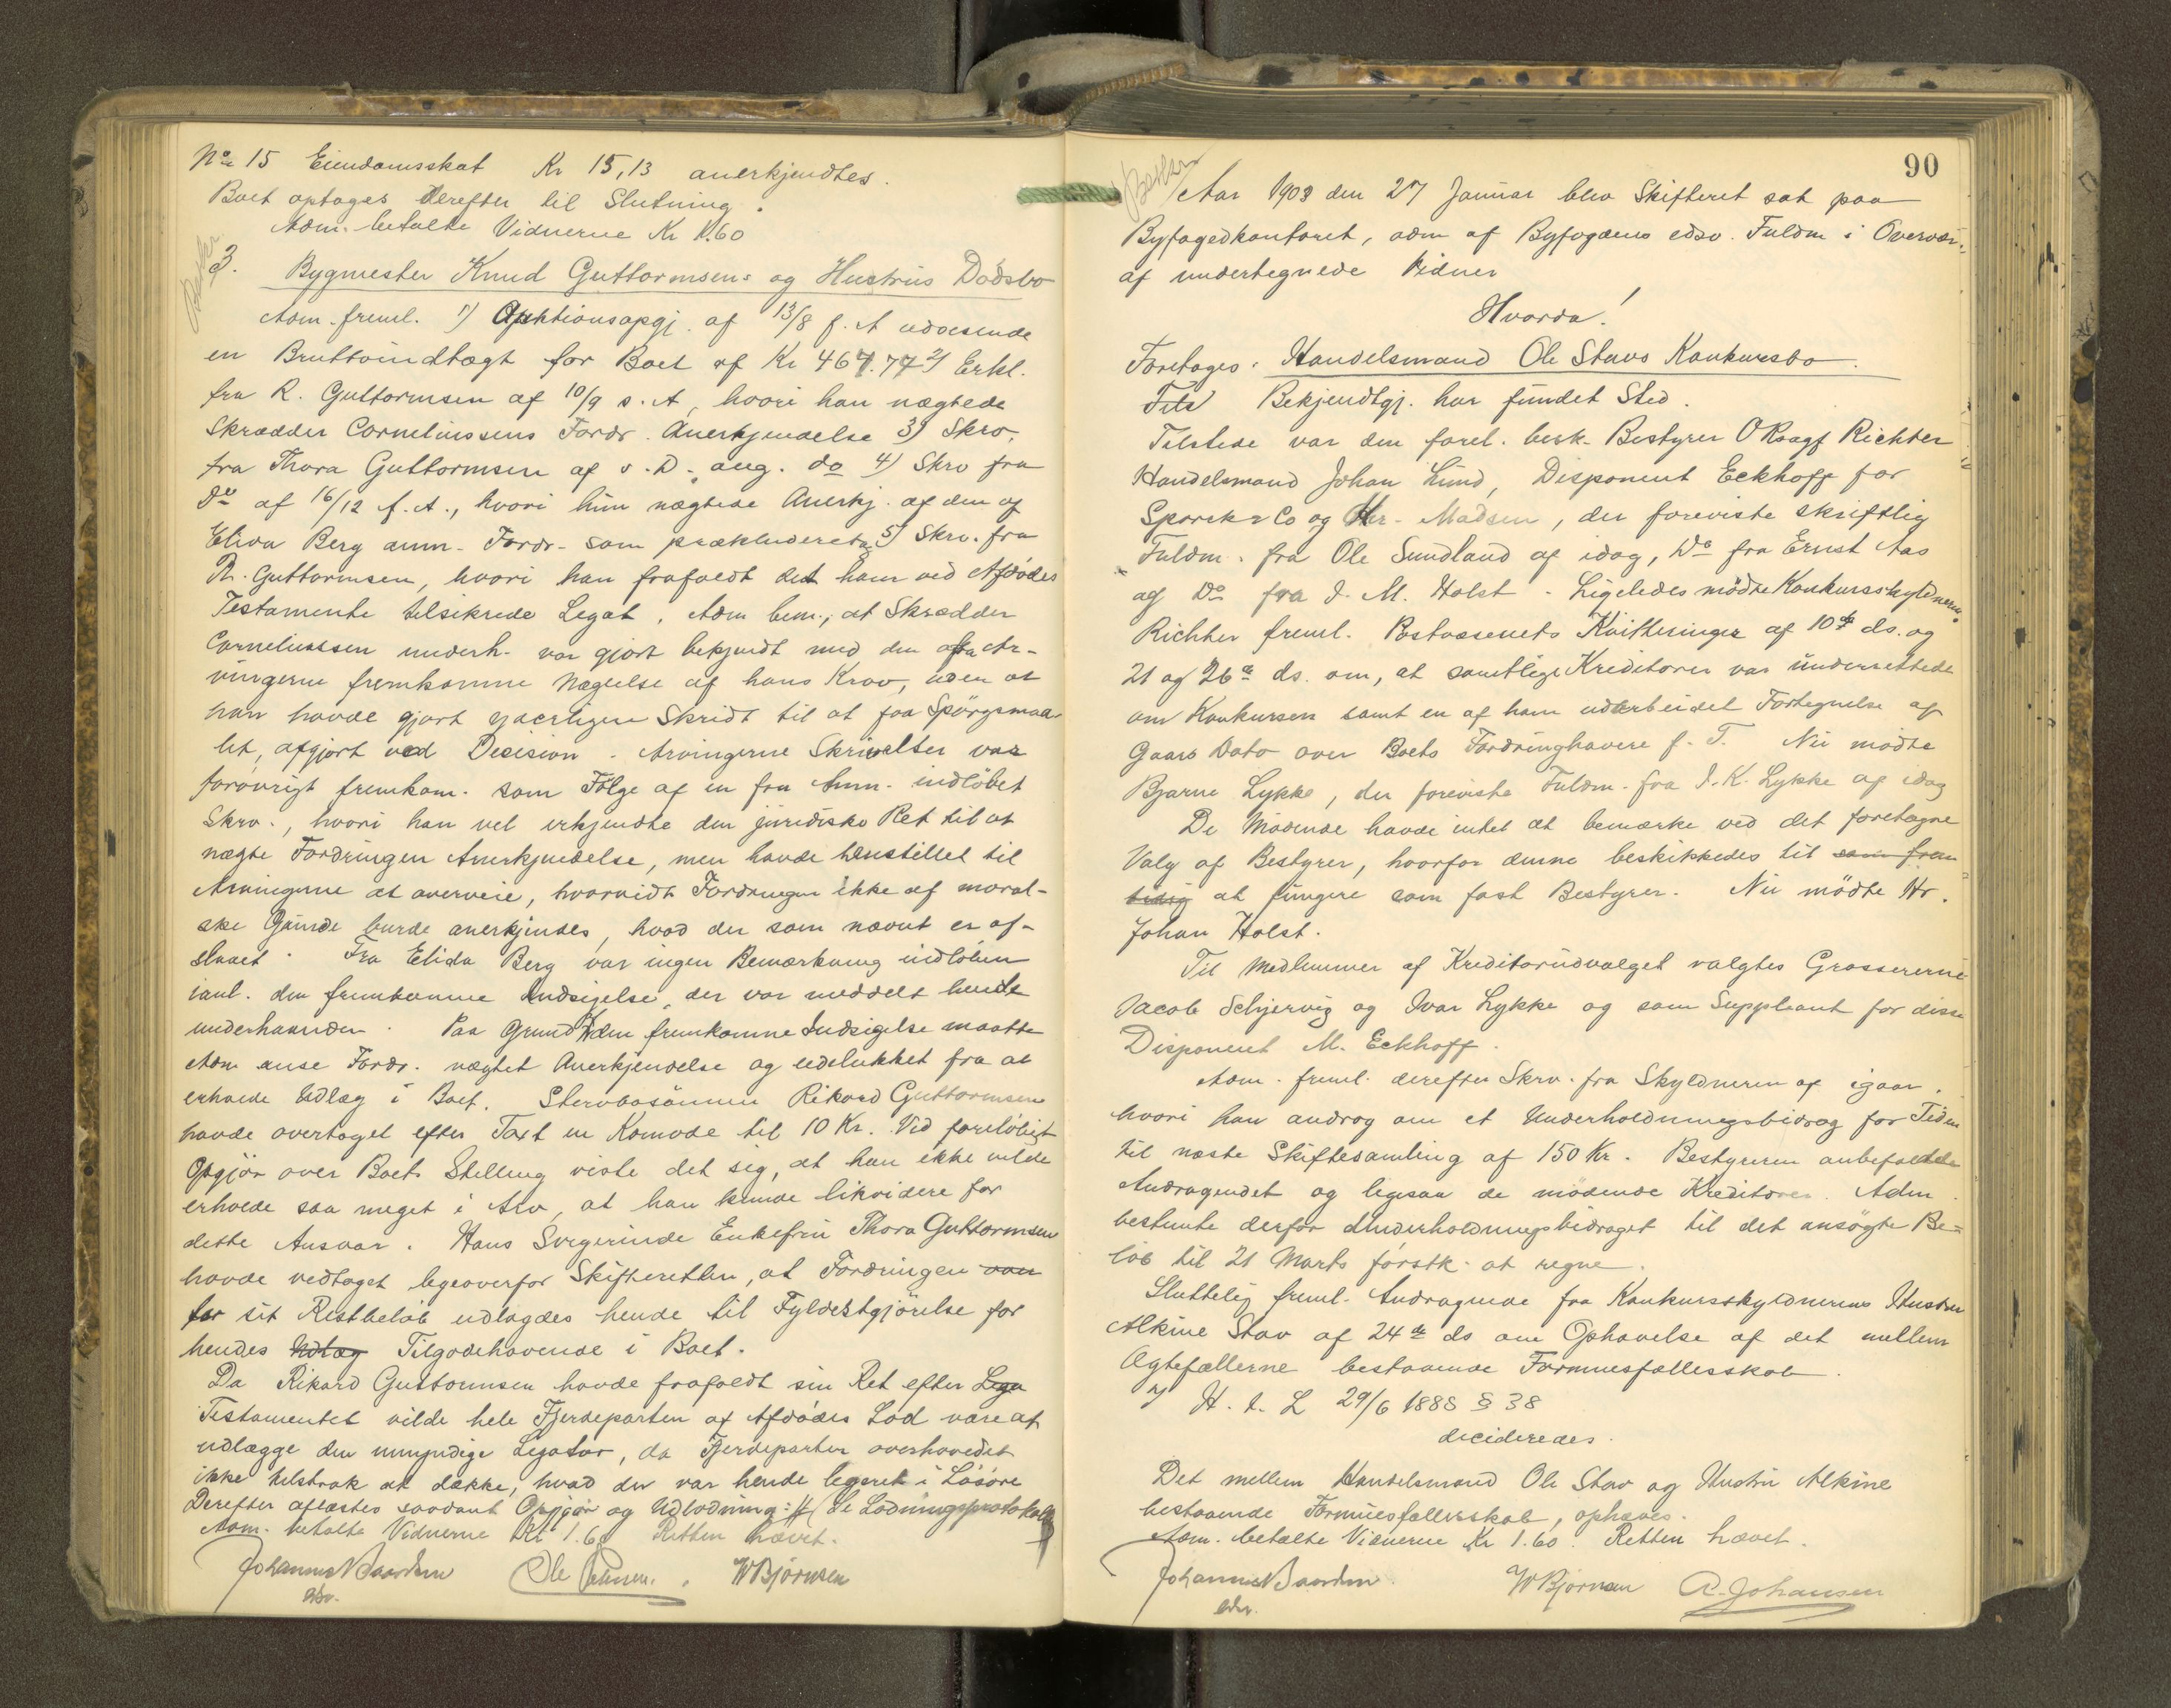 No 15 Eiendomsskat Kr 15,13 anerkjendtes.
Boet optages derefter til Slutning.
Adm. betalte Vidnerne Kr 1.60
3. Bygmester Knud Guttormsens og Hustrus Dödsbo
Adm. freml. 1) Auktionsopgj. af 13/8 f. A udvisende
en Bruttoindtægt for Boet af Kr 467.77 2) Erkl.
fra R. Guttormsen af 10/9 s. A, hvori han nægtede
Skrædder Corneliussens Fordr. Anerkjendelse 3) Skrv.
fra Thora Guttormsen af s. D. ang. do 4) Skrv fra
Do af 16/12 f. A., hvori hun nægtede Anerkj. af den af
Elida Berg anm. Fordr. som prækluderet 5) Skrv. fra
R. Guttormsen, hvori han frafaldt det ham ved Afdödes
Testamente tilsikrede Legat. Adm bem., at Skrædder
Corneliussen underh. var gjort bekjendt med den fra Ar-
vingerne fremkomne Nægtelse af hans Krav, uden at
han havde gjort yderligere Skridt til at faa Spörgsmaa-
let afgjort ved Decision. Arvingernes Skrivelser var
forövrigt fremkom. som Fölge af en fra Anm. indlöbet
Skrv., hvori han vel erkjendte den juridiske Ret til at
nægte Fordringen Anerkjendelse, men havde henstillet til
Arvingerne at overveie, hvorvidt Fordringen ikke af moral-
ske Grunde burde anerkjendes, hvad der som nævnt er af-
slaaet. Fra Elida Berg var ingen Bemærkning indlöben
den fremkomne Indsigelse, der var meddelt hende
underhaanden. Paa Grund af den fremkomne Indsigelse maatte
Adm anse Fordr. nægtet Anerkjendelse og udelukket fra at
erholde Udlæg i Boet. Stervbosönnen Rikard Guttormsen
havde overtaget efter Taxt en Komode til 10 Kr. Ved foreløbigt
Opgjör over Boets Stilling viste det sig, at han ikke vilde
erholde saa meget i Arv, at han kunde likvidere for
dette Ansvar. Hans Svigerinde Enkefru Thora Guttormsen
havde vedtaget ligeoverfor Skifteretten, at Fordringen
for sit Restbelöb udlagdes hende til Fyldestgjörelse for
hendes Udlæg Tilgodehavende i Boet.
Da Rikard Guttormsen havde frafaldt sin Ret efter
Testamentet vilde hele Fjerdeparten af Afdödes Lod være at
udlægge den umyndige Legatar, da Fjerdeparten overhovedet
ikke tilstrak at dække, hvad der var hende legeret i Lösöre
Derefter aflæstes saadant Opgjör og Udlodning: (se Lodningsprotokol
Adm. betalte Vidnerne Kr 1.60 Retten hævet.
Ole W Björnsen
edsv.
90
Aar 1903 den 27 Januar blev Skifteret sat paa
Byfogedkontoret, adm af Byfogdens edsv. Fuldm i Overvær.
af undertegnede Vidner
Hvorda!
Foretages: Handelsmand Ole Stavs Konkursbo.
Bekjendtgj. har fundet Sted.
Tilstede var den forel. besk. Bestyrer ORsagf Richter
Handelsmand Johan Lund, Disponent Eckhoff for
Sparck & Co og Hr. Madsen, der foreviste skriftlig
Fuldm. fra Ole Sundland af idag, Do fra Ernst Aas
og Do fra J. M. Holst. Ligeledes mödte Konkursskyldneren.
Richter freml. Postvæsenets Kvitteringer af 10de ds. og
21 og 26de ds. om, at samtlige Kreditorer var underrettede
om Konkursen samt en af ham udarbeidet Fortegnelse af
Gaars Dato over Boets Fordringhavere f. T. Nu mödte
Bjarne Lykke, der foreviste Fuldm. fra J. K. Lykke af idag
De Mödende havde intet at bemærke ved det foretagne
Valg af Bestyrer, hvorfor denne beskikkedes til som frem
tidig at fungere som fast Bestyrer. Nu mödte Hr.
Johan Holst.
Til Medlemmer af Kreditorudvalget valgtes Grossererne
Jacob Schjervig og Ivar Lykke og som Suppleant for disse
Disponent M. Eckhoff.
Adm. freml. derefter Skrv. fra Skyldneren af igaar,
hvori han androg om et Underholdningsbidrag for Tiden
til næste Skiftesamling af 150 Kr. Bestyreren anbefalede
Andragendet og ligesaa de mödende Kreditorer. Adm.
bestemte derfor Underholdningsbidraget til det ansögte Be-
löb til 21 Marts förstk. at regne.
Sluttelig freml. Andragende fra Konkursskyldnerens Hustru
Alkine Stav af 24de ds om Ophævelse af det mellem
Ægtefællerne bestaaende Formuesfællesskab.
H. t. L 29/6 1888 § 38
decideredes.
Det mellem Handelsmand Ole Stav og Hustru Alkine
bestaaende Formuesfællesskab, ophæves.
Adm. betalte Vidnerne Kr 1.60. Retten hævet.
W Björnsen A. Johansen
edsv.